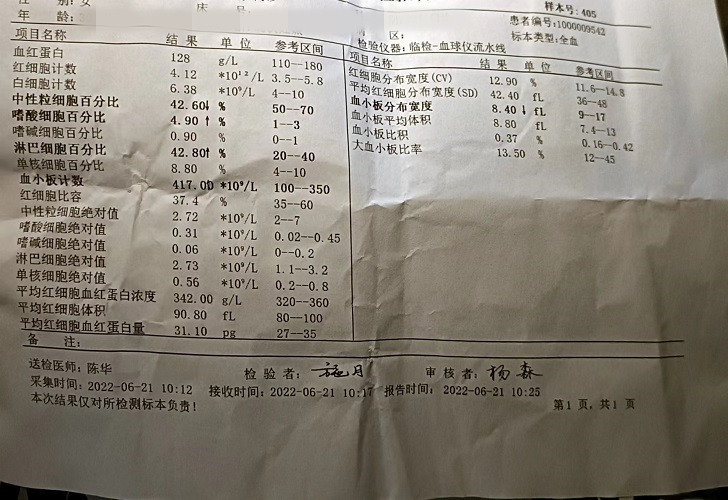 性 别:女
样本号:405
年 龄:
床 号:
区:
患者编号:1000009542
标本类型:全血
检验仪器:临检-血球仪流水线
项目名称 结 果 单 位 参考区间
血红蛋白 128 g/L 110--180
红细胞计数 4.12 *10¹²/L 3.5--5.8
白细胞计数 6.38 *10⁹/L 4--10
中性粒细胞百分比 42.60↓ % 50--70
嗜酸细胞百分比 4.90 ↑ % 1--3
嗜碱细胞百分比 0.90 % 0--1
淋巴细胞百分比 42.80↑ % 20--40
单核细胞百分比 8.80 % 4--10
血小板计数 417.00 *10⁹/L 100--350
红细胞比容 37.4 % 35--60
中性粒细胞绝对值 2.72 *10⁹/L 2--7
嗜酸细胞绝对值 0.31 *10⁹/L 0.02--0.45
嗜碱细胞绝对值 0.06 *10⁹/L 0--0.2
淋巴细胞绝对值 2.73 *10⁹/L 1.1--3.2
单核细胞绝对值 0.56 *10⁹/L 0.2--0.8
平均红细胞血红蛋白浓度 342.00 g/L 320--360
平均红细胞体积 90.80 fL 80--100
平均红细胞血红蛋白量 31.10 pg 27--35
项目名称 结 果 单 位 参考区间
红细胞分布宽度(CV) 12.90 % 11.6--14.8
平均红细胞分布宽度(SD) 42.40 fL 36--48
血小板分布宽度 8.40 ↓ fL 9--17
血小板平均体积 8.80 fL 7.4--13
血小板比积 0.37 % 0.16--0.42
大血小板比率 13.50 % 12--45
备 注:
送检医师:陈华 检 验 者: 施月 审 核 者: 杨森
采集时间:2022-06-21 10:12 接收时间:2022-06-21 10:17 报告时间: 2022-06-21 10:25
本次结果仅对所检测标本负责! 第1 页, 共1 页